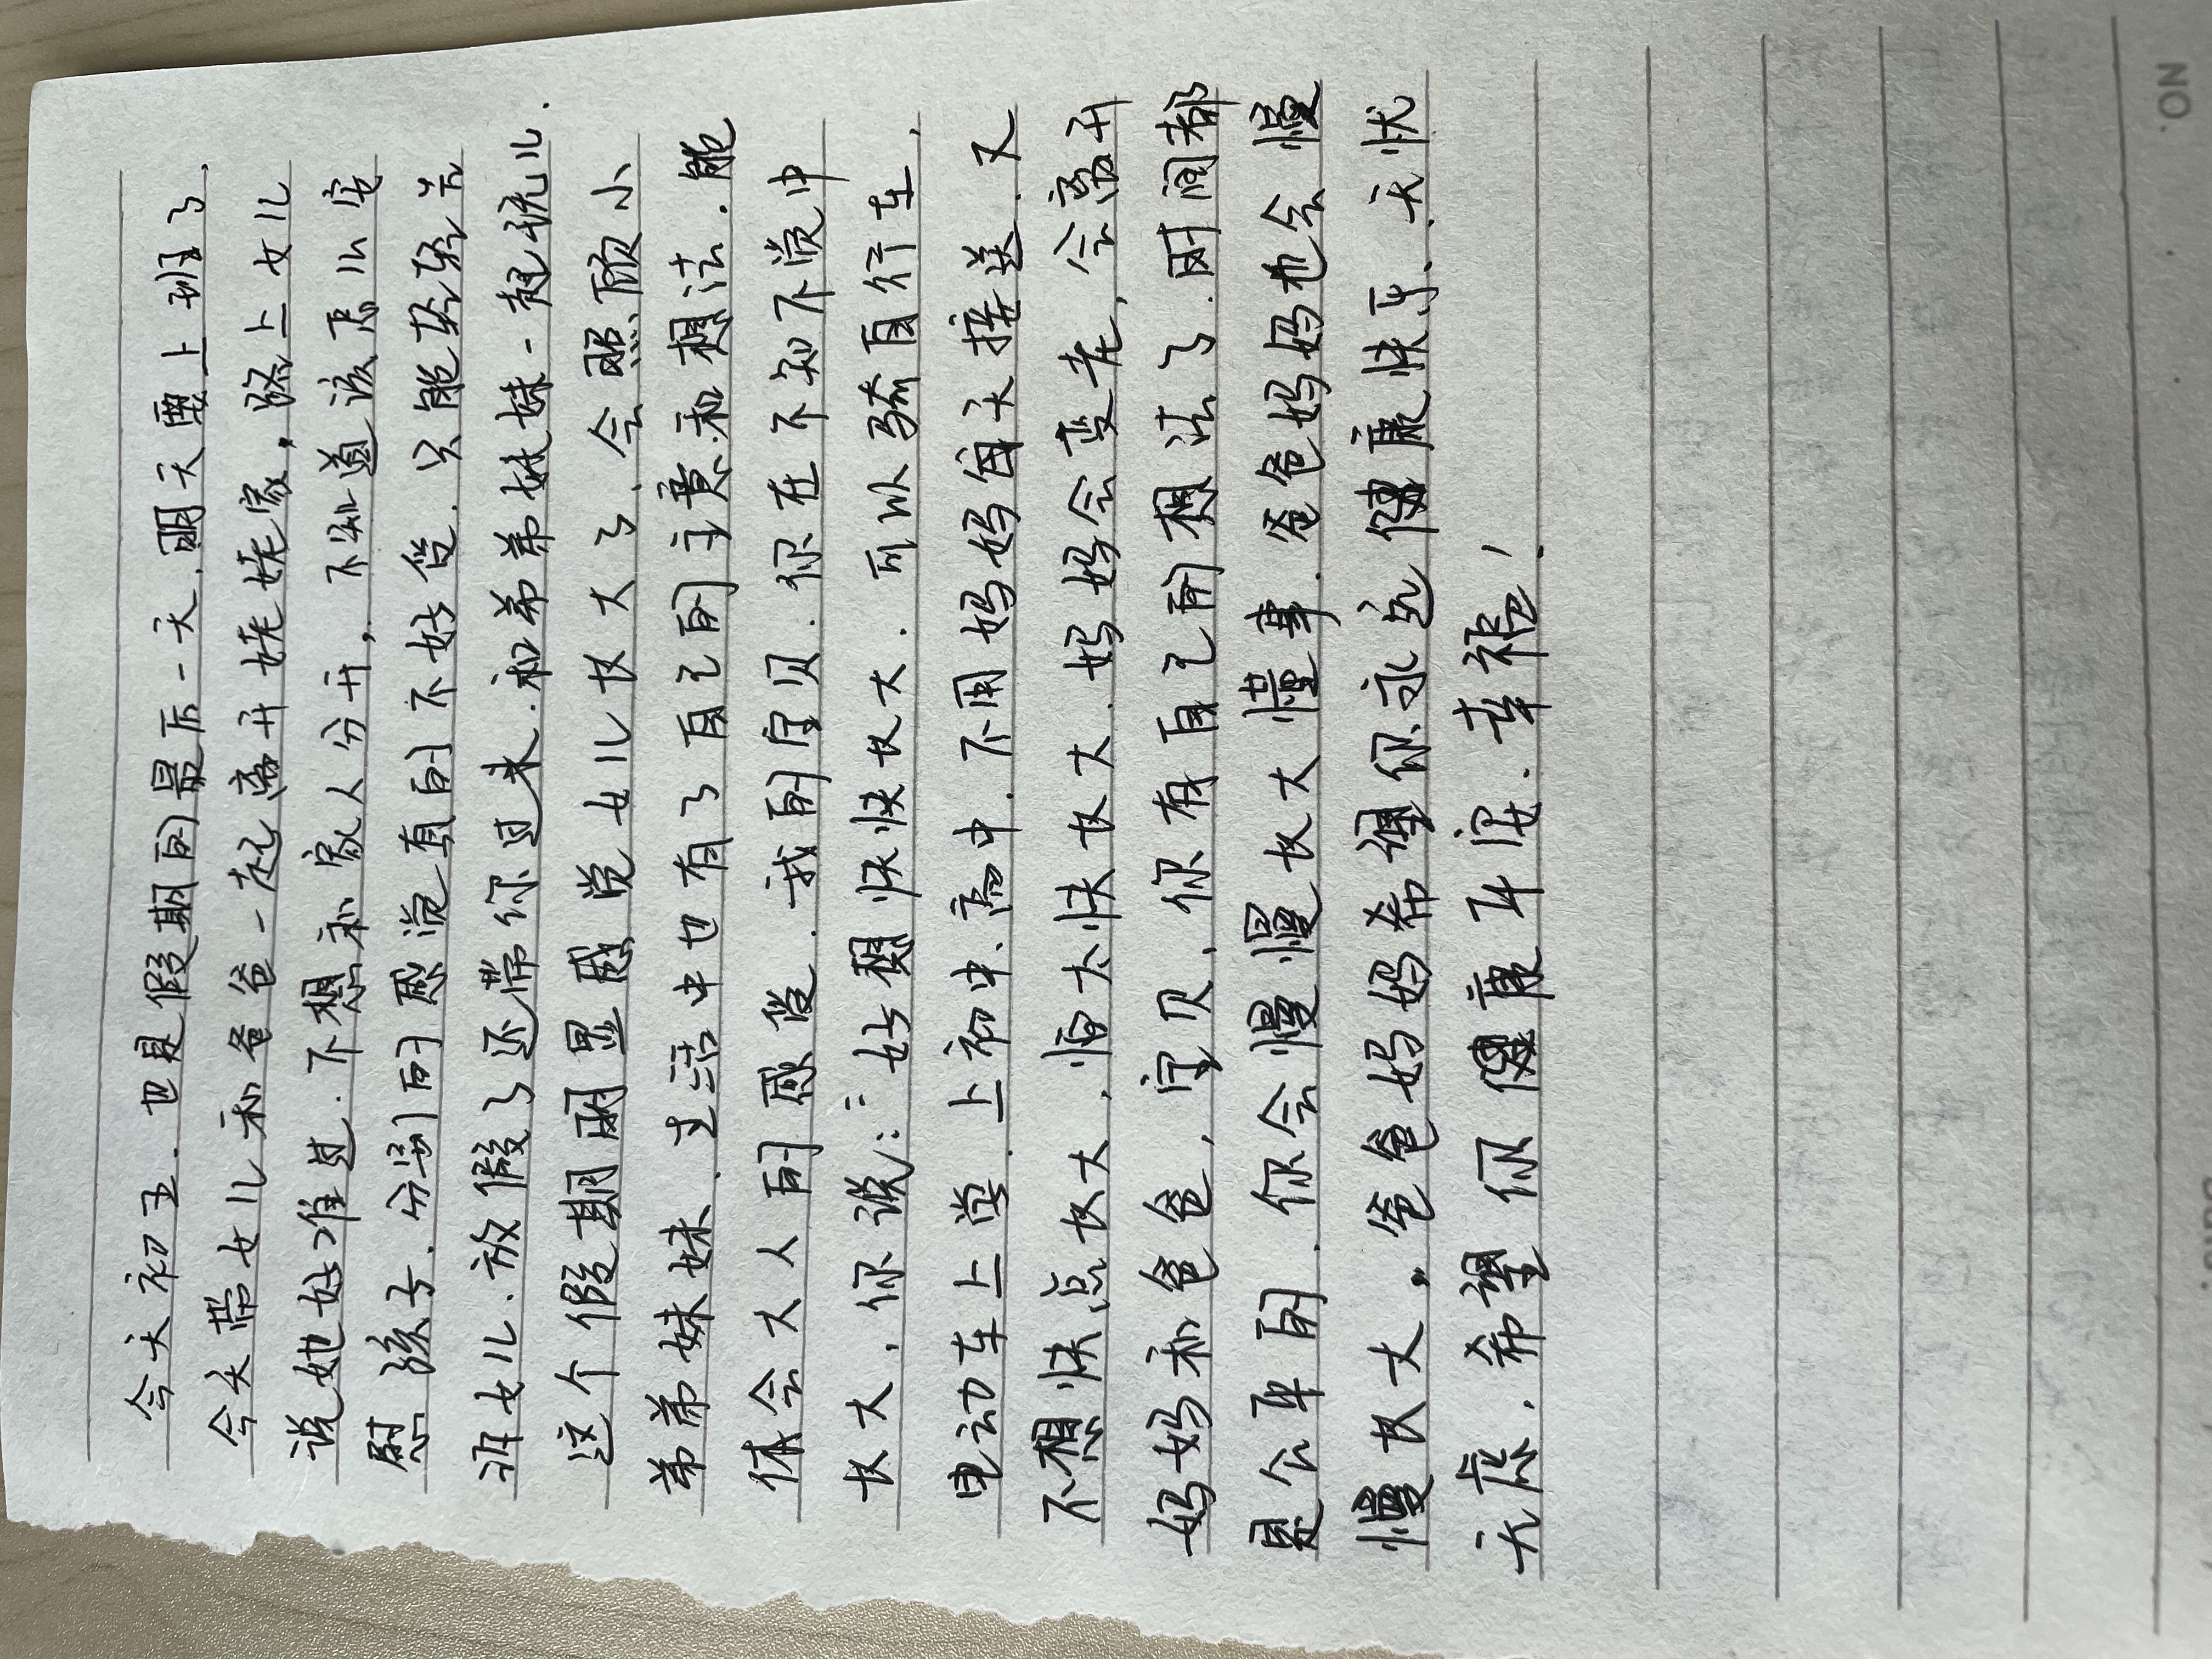 今天初五.也是假期的最后一天.明天要上班了.
今天带女儿和爸爸一起离开姥姥家,路上女儿
说她好难过.不想和家人分开,不知道该怎么安
慰孩子.分别的感觉真的不好受.只能轻轻告
诉女儿.放假了还带你过来.和弟弟妹妹一起玩儿.
这个假期明显感觉女儿长大了、会照顾小
弟弟妹妹.生活中也有了自己的主意和想法.能
体会大人的感受.我的宝贝.你在不知不觉中
长大,你说:::好想快快长大.可以骑自行车,
电动车上学.上初中、高中.不用妈妈每天接送.又
不想快点长大,怕太快长大.妈妈会变老,会离开
妈妈和爸爸,宝贝,你有自己的想法了.时间都
是公平的.你会慢慢长大懂事.爸爸妈妈也会慢
慢长大。爸爸妈妈希望你永远健康快乐、无忧
无虑,希望你健康平安.幸福!
NO.